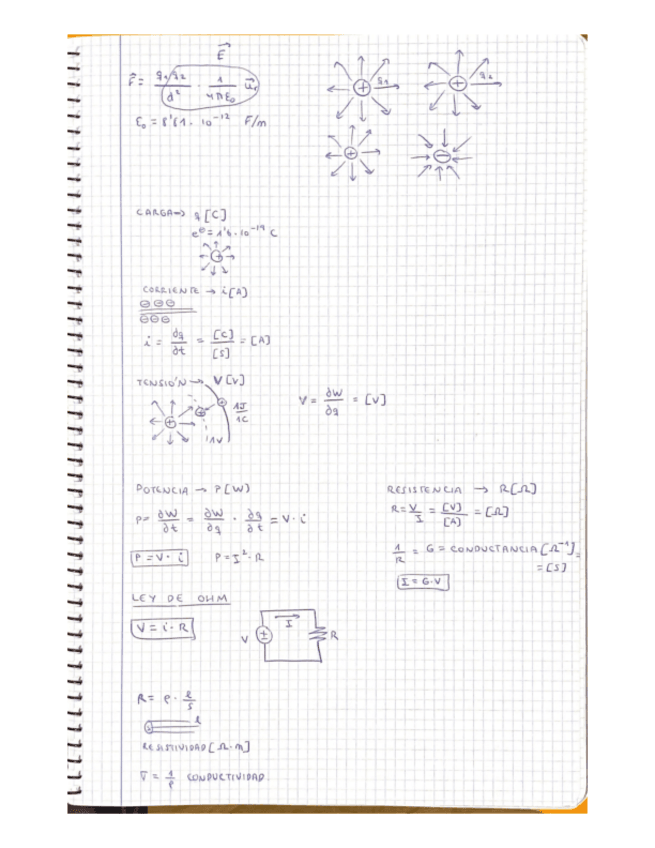 E⃗
F⃗ = q₁q₂/d² · 1/4πε₀ u⃗r
q₁ q₂
ε₀ = 8'81 · 10⁻¹² F/m
CARGA → q [C]
e⁻ = 1'6 · 10⁻¹⁹ C
CORRIENTE → i [A]
i = ∂q/∂t = [C]/[S] = [A]
TENSIÓN → V [V]
1J/1C
1V
V = ∂W/∂q = [V]
POTENCIA → P [W]
P = ∂W/∂t = ∂W/∂q · ∂q/∂t = V · i
P = V · i P = I² · R
RESISTENCIA → R [Ω]
R = V/I = [V]/[A] = [Ω]
1/R = G = CONDUCTANCIA [Ω⁻¹] =
= [S]
I = G·V
LEY DE OHM
V = i · R
V I R
R = ρ · l/s
s l
RESISTIVIDAD [Ω · m]
σ = 1/ρ CONDUCTIVIDAD